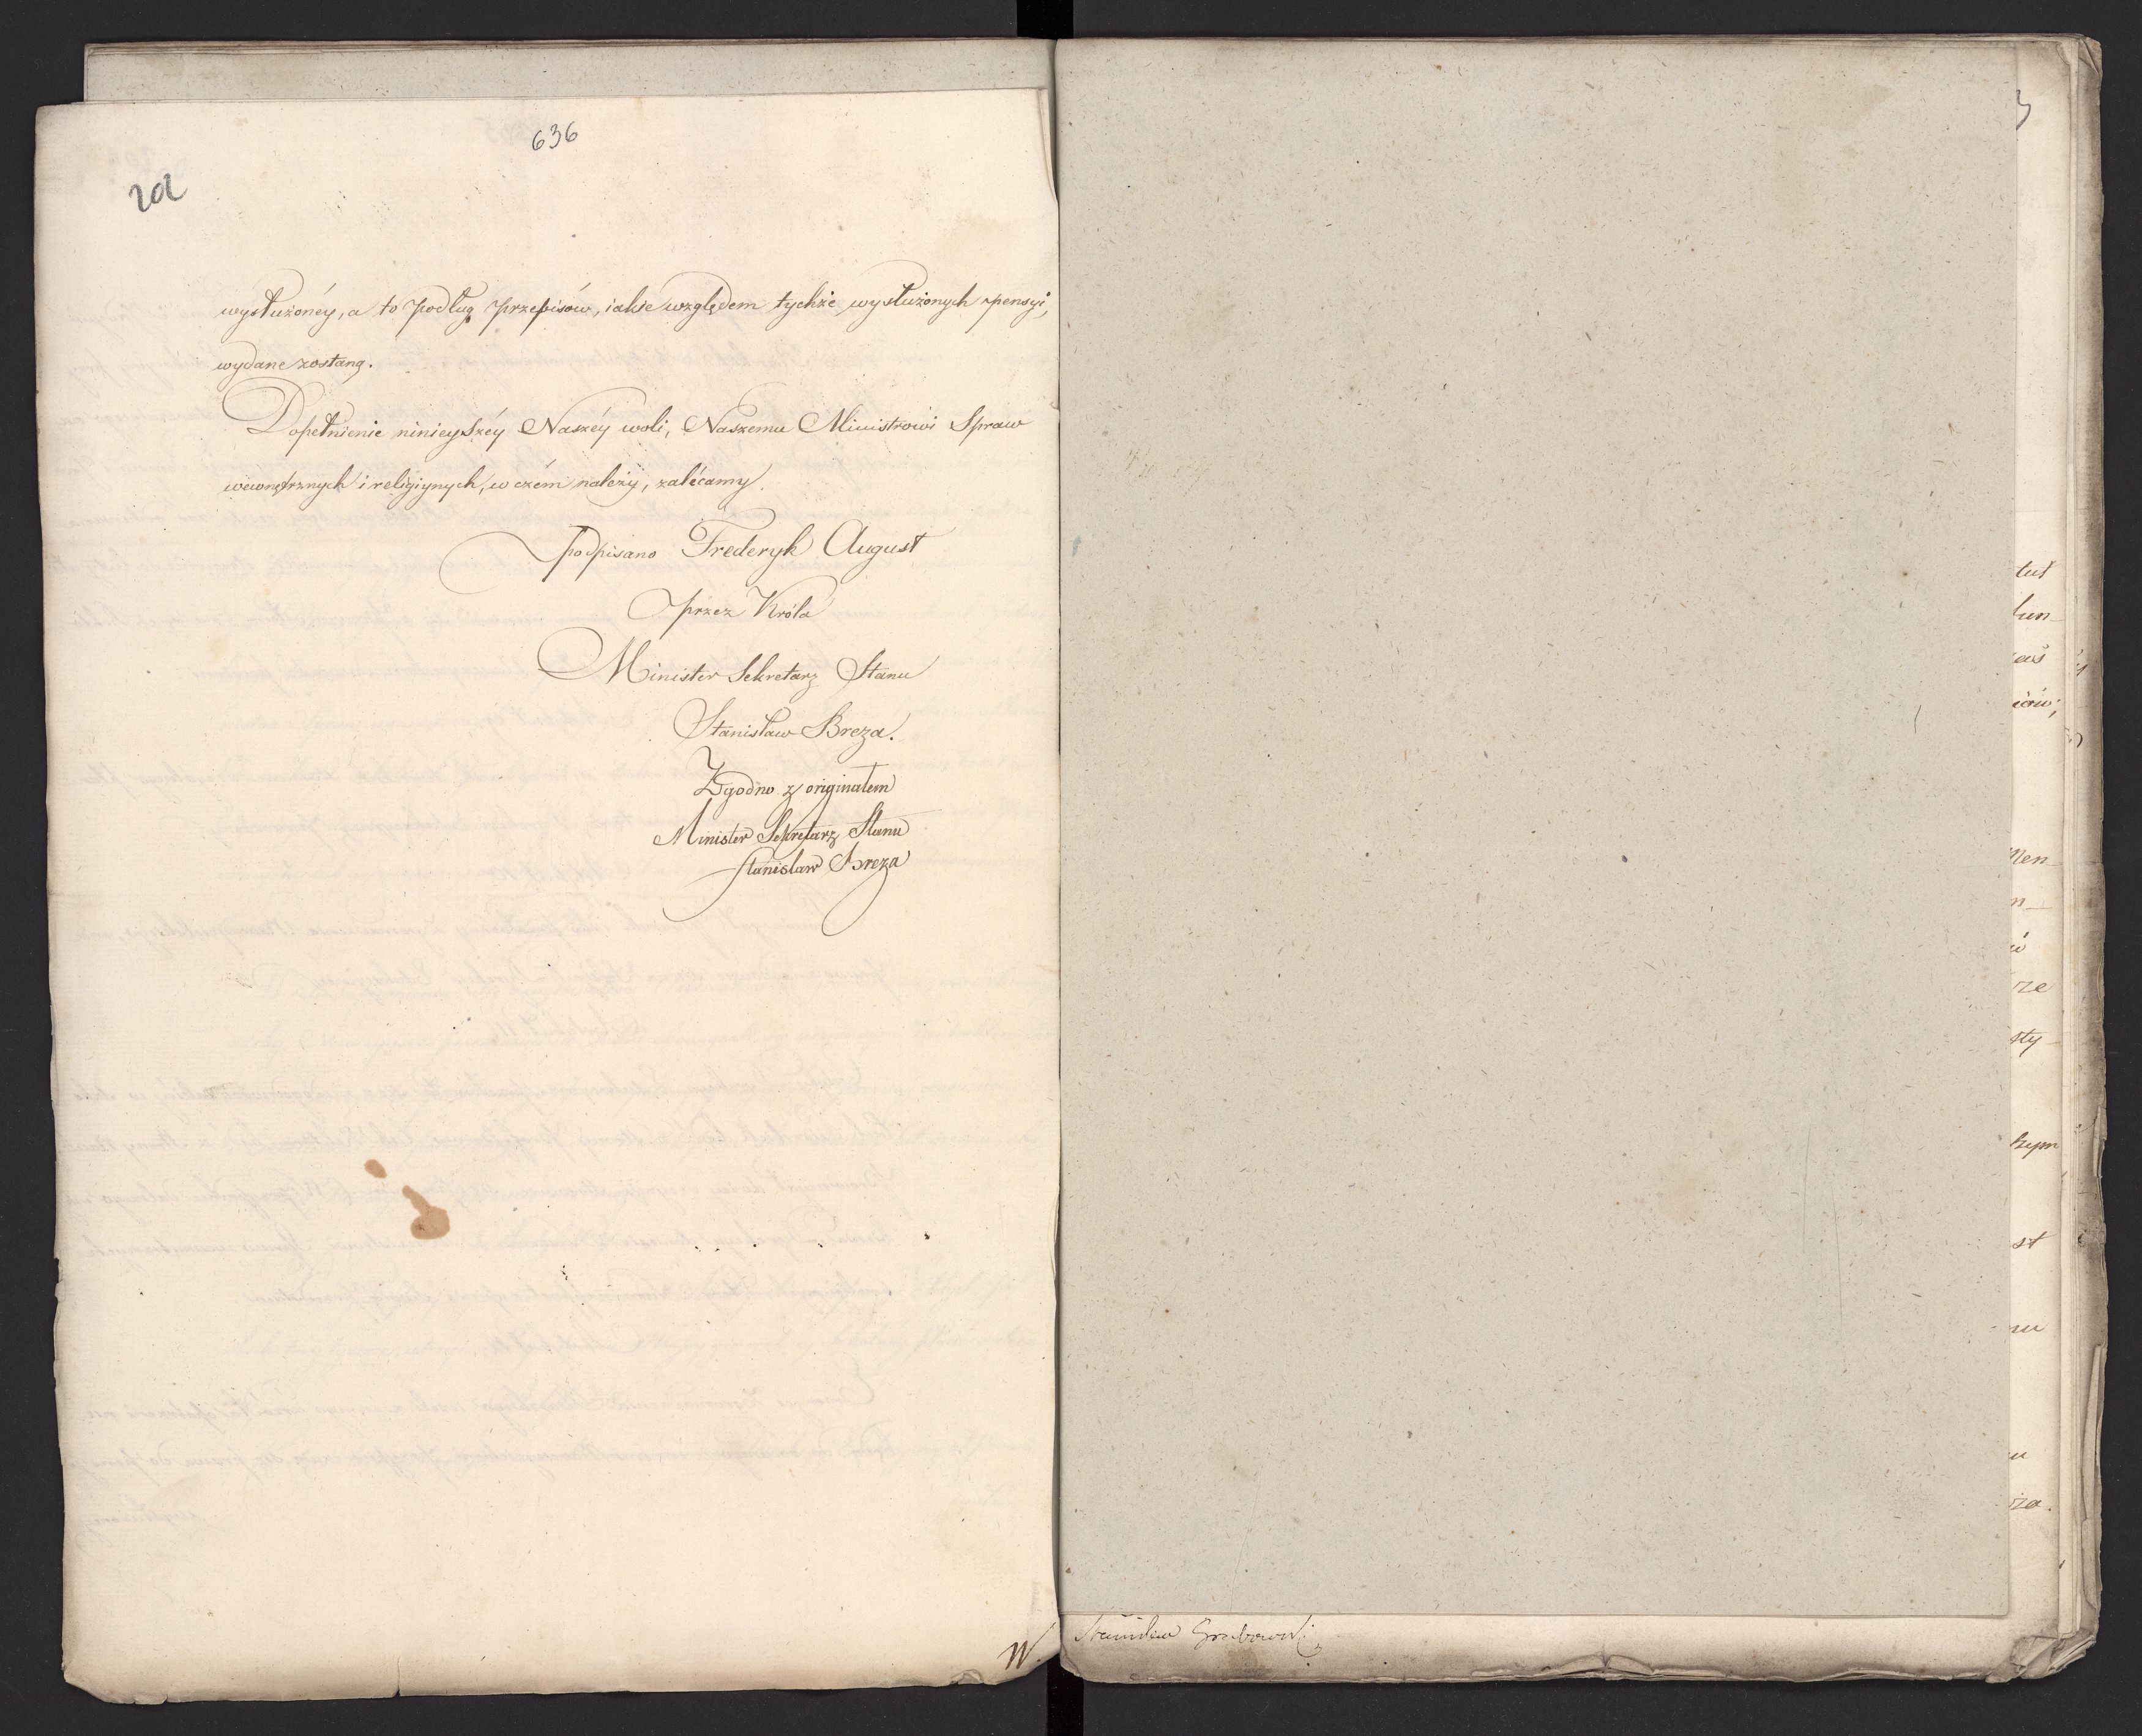 636
wysłużonéy, a to podług przepisów, iakie względem tychże wysłużonych pensyi,
wydane zostaną.
Dopełnienie ninieyszéy Naszéy woli, Naszemu Ministrowi Spraw
wewnętrznych i religiynych, w czém należy, zalécamy.
podpisano Frederyk August
przez Króla
Minister Sekretarz Stanu
Stanisław Breza.
Zgodno z originałem
Minister Sekretarz Stanu
Stanisław Breza
W.
Stanisław Grabowski
tut
kun
ów;
Men
n
rze
sty
szym
st
nu
u
za.